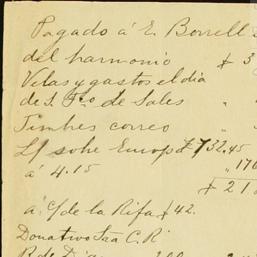 Pagado á E. Borrell
del harmonio $ 3
Velas y gastos el dia
de S. Fco de Sales "
Timbres correo "
L/ sobre Europa $ 732.45
á 4.15 " 176
$ 21
á c/ de la Rifa $ 42.
Donativo Sra C. R